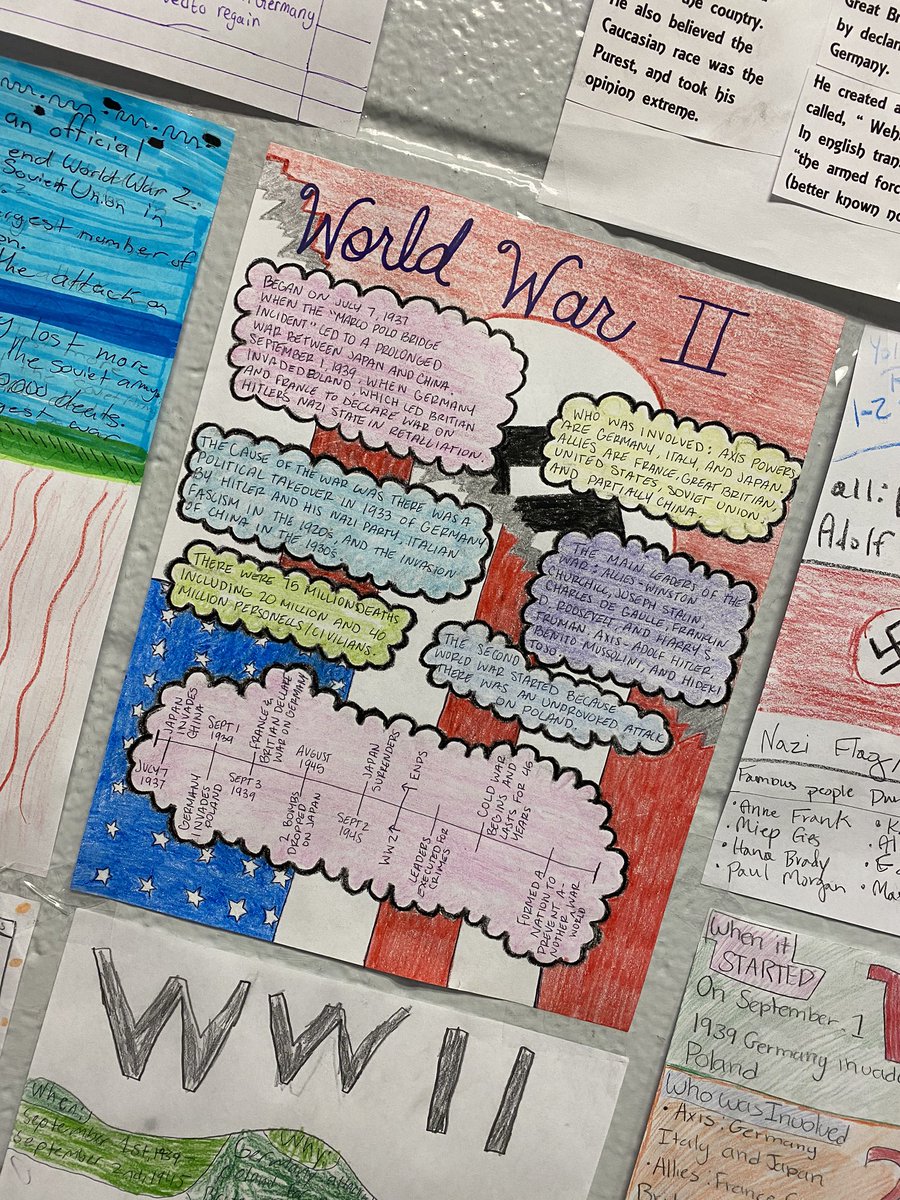 Germany
to regain
the country.
He also believed the
Caucasian race was the
Purest, and took his
opinion extreme.
Great Br
by declar
Germany.
He created a
called, " Weh
In english tran
"the armed forc
(better known no
an official
end World War 2.
Soviet Union in
argest number of
the attack on
lost more
the Soviet army
World War II
BEGAN ON JULY 7, 1937
WHEN THE "MARCO POLO BRIDGE
INCIDENT" LED TO A PROLONGED
WAR BETWEEN JAPAN AND CHINA.
SEPTEMBER 1, 1939, WHEN GERMANY
INVADED POLAND, WHICH LED BRITIAN
AND FRANCE TO DECLARE WAR ON
HITLERS NAZI STATE IN RETALLIATION.
WHO WAS INVOLVED: AXIS POWERS
ARE GERMANY, ITALY, AND JAPAN.
ALLIES ARE FRANCE, GREAT BRITIAN,
UNITED STATES, SOVIET UNION,
AND PARTIALLY CHINA.
THE CAUSE OF THE WAR WAS THERE WAS A
POLITICAL TAKEOVER IN 1933 OF GERMANY
BY HITLER AND HIS NAZI PARTY, ITALIAN
FASCISM IN THE 1920s, AND THE INVASION
OF CHINA IN THE 1930s.
THE MAIN LEADERS OF THE
WAR: ALLIES - WINSTON
CHURCHILL, JOSEPH STALIN
CHARLES DE GAULLE, FRANKLIN
D. ROOSEVELT, AND HARRY S.
TRUMAN. AXIS - ADOLF HITLER,
BENITO MUSSOLINI, AND HIDEKI
TOJO
THERE WERE 75 MILLION DEATHS
INCLUDING 20 MILLION AND 40
MILLION PERSONELLS/CIVILIANS.
THE SECOND
WORLD WAR STARTED BECAUSE
THERE WAS AN UNPROVOKED ATTACK
ON POLAND.
JAPAN
INVADES
CHINA
JULY 7
1937
SEPT 1
1939
GERMANY
INVADES
POLAND
FRANCE &
BRITIAN DECLARE
WAR ON GERMANY
SEPT 3
1939
AUGUST
1945
2 BOMBS
DROPPED
ON JAPAN
JAPAN
SURRENDERS
SEPT 2
1945
WW2 → ENDS
LEADERS
EXECUTED FOR
CRIMES
COLD WAR
BEGINS AND
LASTS FOR 45
YEARS
FORMED A
NATION TO
PREVENT A-
NOTHER WAR
WORLD
1-2
all:
Adolf
Nazi Flag
Famous people
• Anne Frank
• Miep Gies
• Hana Brady
• Paul Morgan
WWII
When
September 1st 1939 -
September 2nd, 1945
Why:
Germany
When it
STARTED
On September 1
1939 Germany invade
Poland
Who was Involved
• Axis: Germany
Italy and Japan
• Allies: France